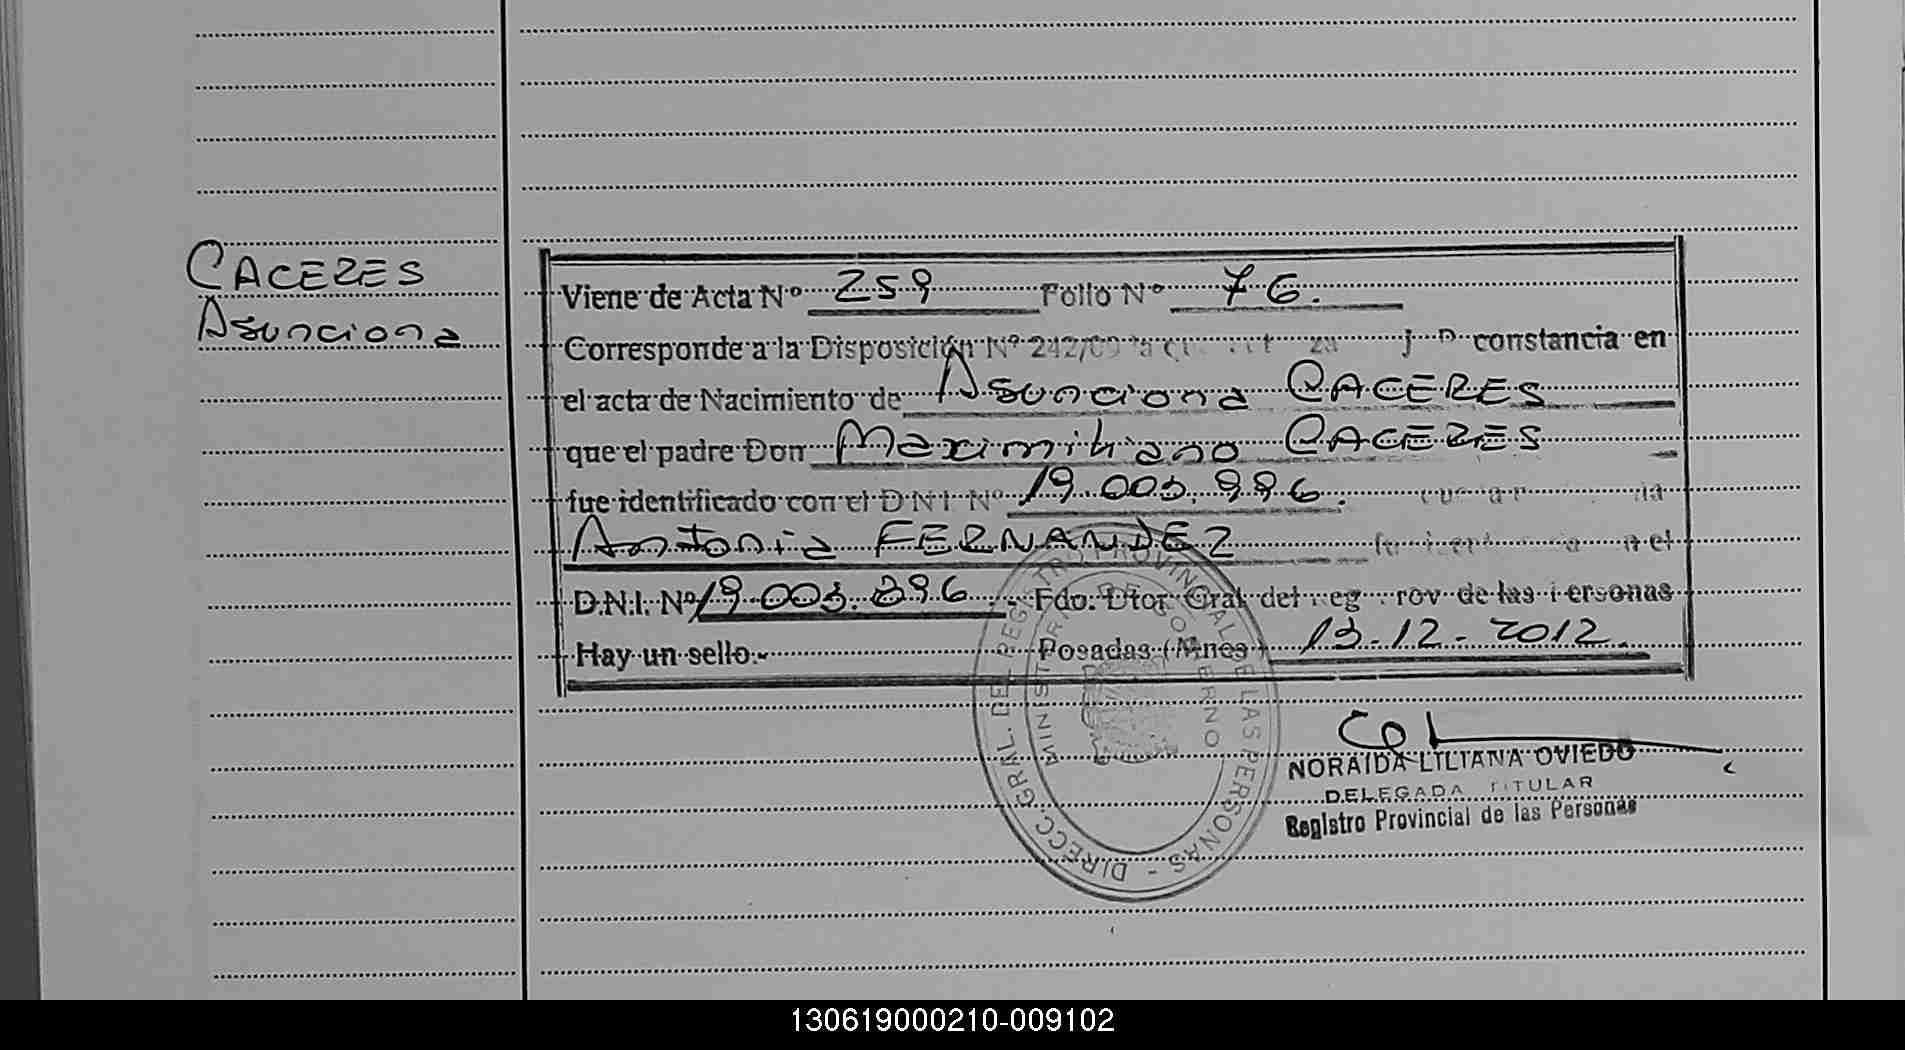 CACERES
Asunciona
Viene de Acta Nº 259 Folio Nº 76.
Corresponde a la Disposición Nº 242/09 constancia en
el acta de Nacimiento de Asunciona CACERES
que el padre Don Maximiliano CACERES
fue identificado con el D N I Nº 19.003.996.
Antonia FERNANDEZ
D.N.I. Nº 19.003.896. - Fdo. Dtor Gral del Reg Prov de las Personas
Hay un sello.- Posadas (Mnes) 13-12-2012.
DIRECC. GRAL. DEL REGISTRO PROVINCIAL DE LAS PERSONAS -
MINISTERIO DE GOBIERNO
NORAIDA LILIANA OVIEDO
DELEGADA TITULAR
Registro Provincial de las Personas
130619000210-009102